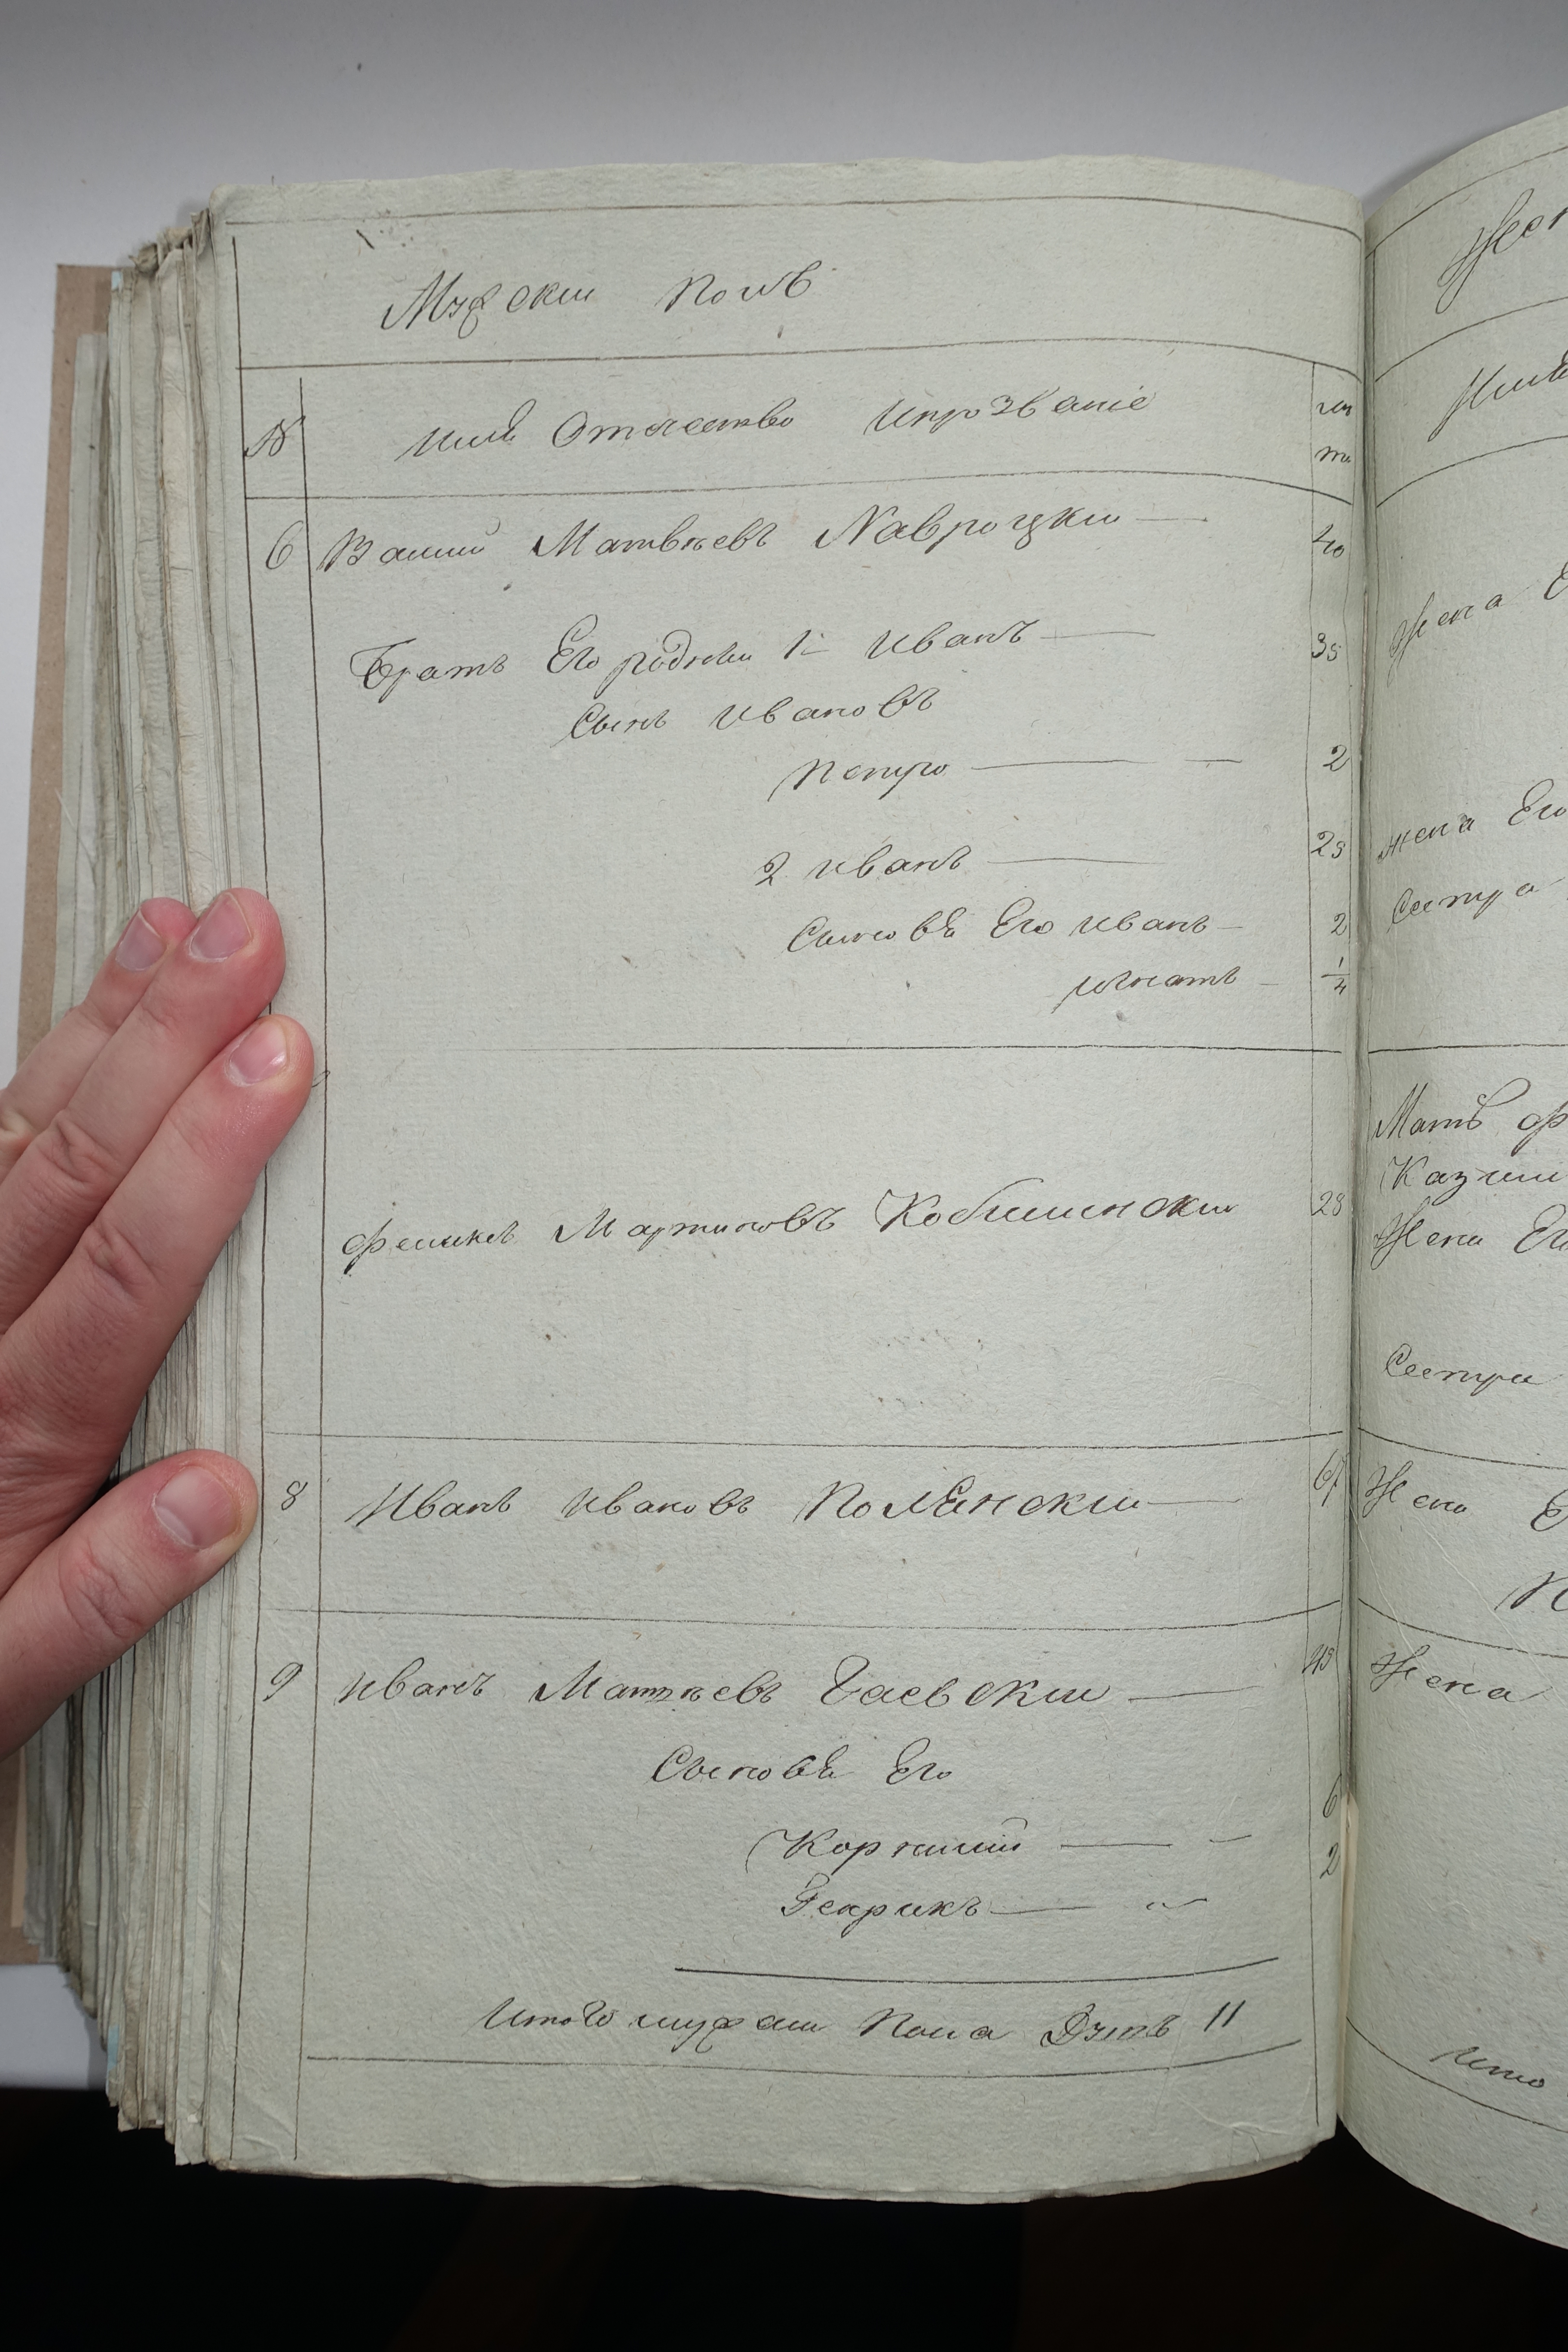 Мужски Полъ
№ имя Отечество ипрозваніе лѣ та
6 Васили Матвѣевъ Навроцки 40
Братъ Его родны 1й Иванъ 35
Сынъ Ивановъ
Петро 2
2 Иванъ 25
Сыновя Его Иванъ 2
Игнатъ 1/4
Феликсъ Мартиновъ Кобылински 28
8 Иванъ Ивановъ Полянски 61
9 Иванъ Матѣевъ Гаевски 43
Сыновя Его
6
Корнилий
2
Генрикъ
Итого мужска Пола Душъ 11
Жена
жена Его
Сестра
Мать
Жена Его
Сестра
Жена
Жена